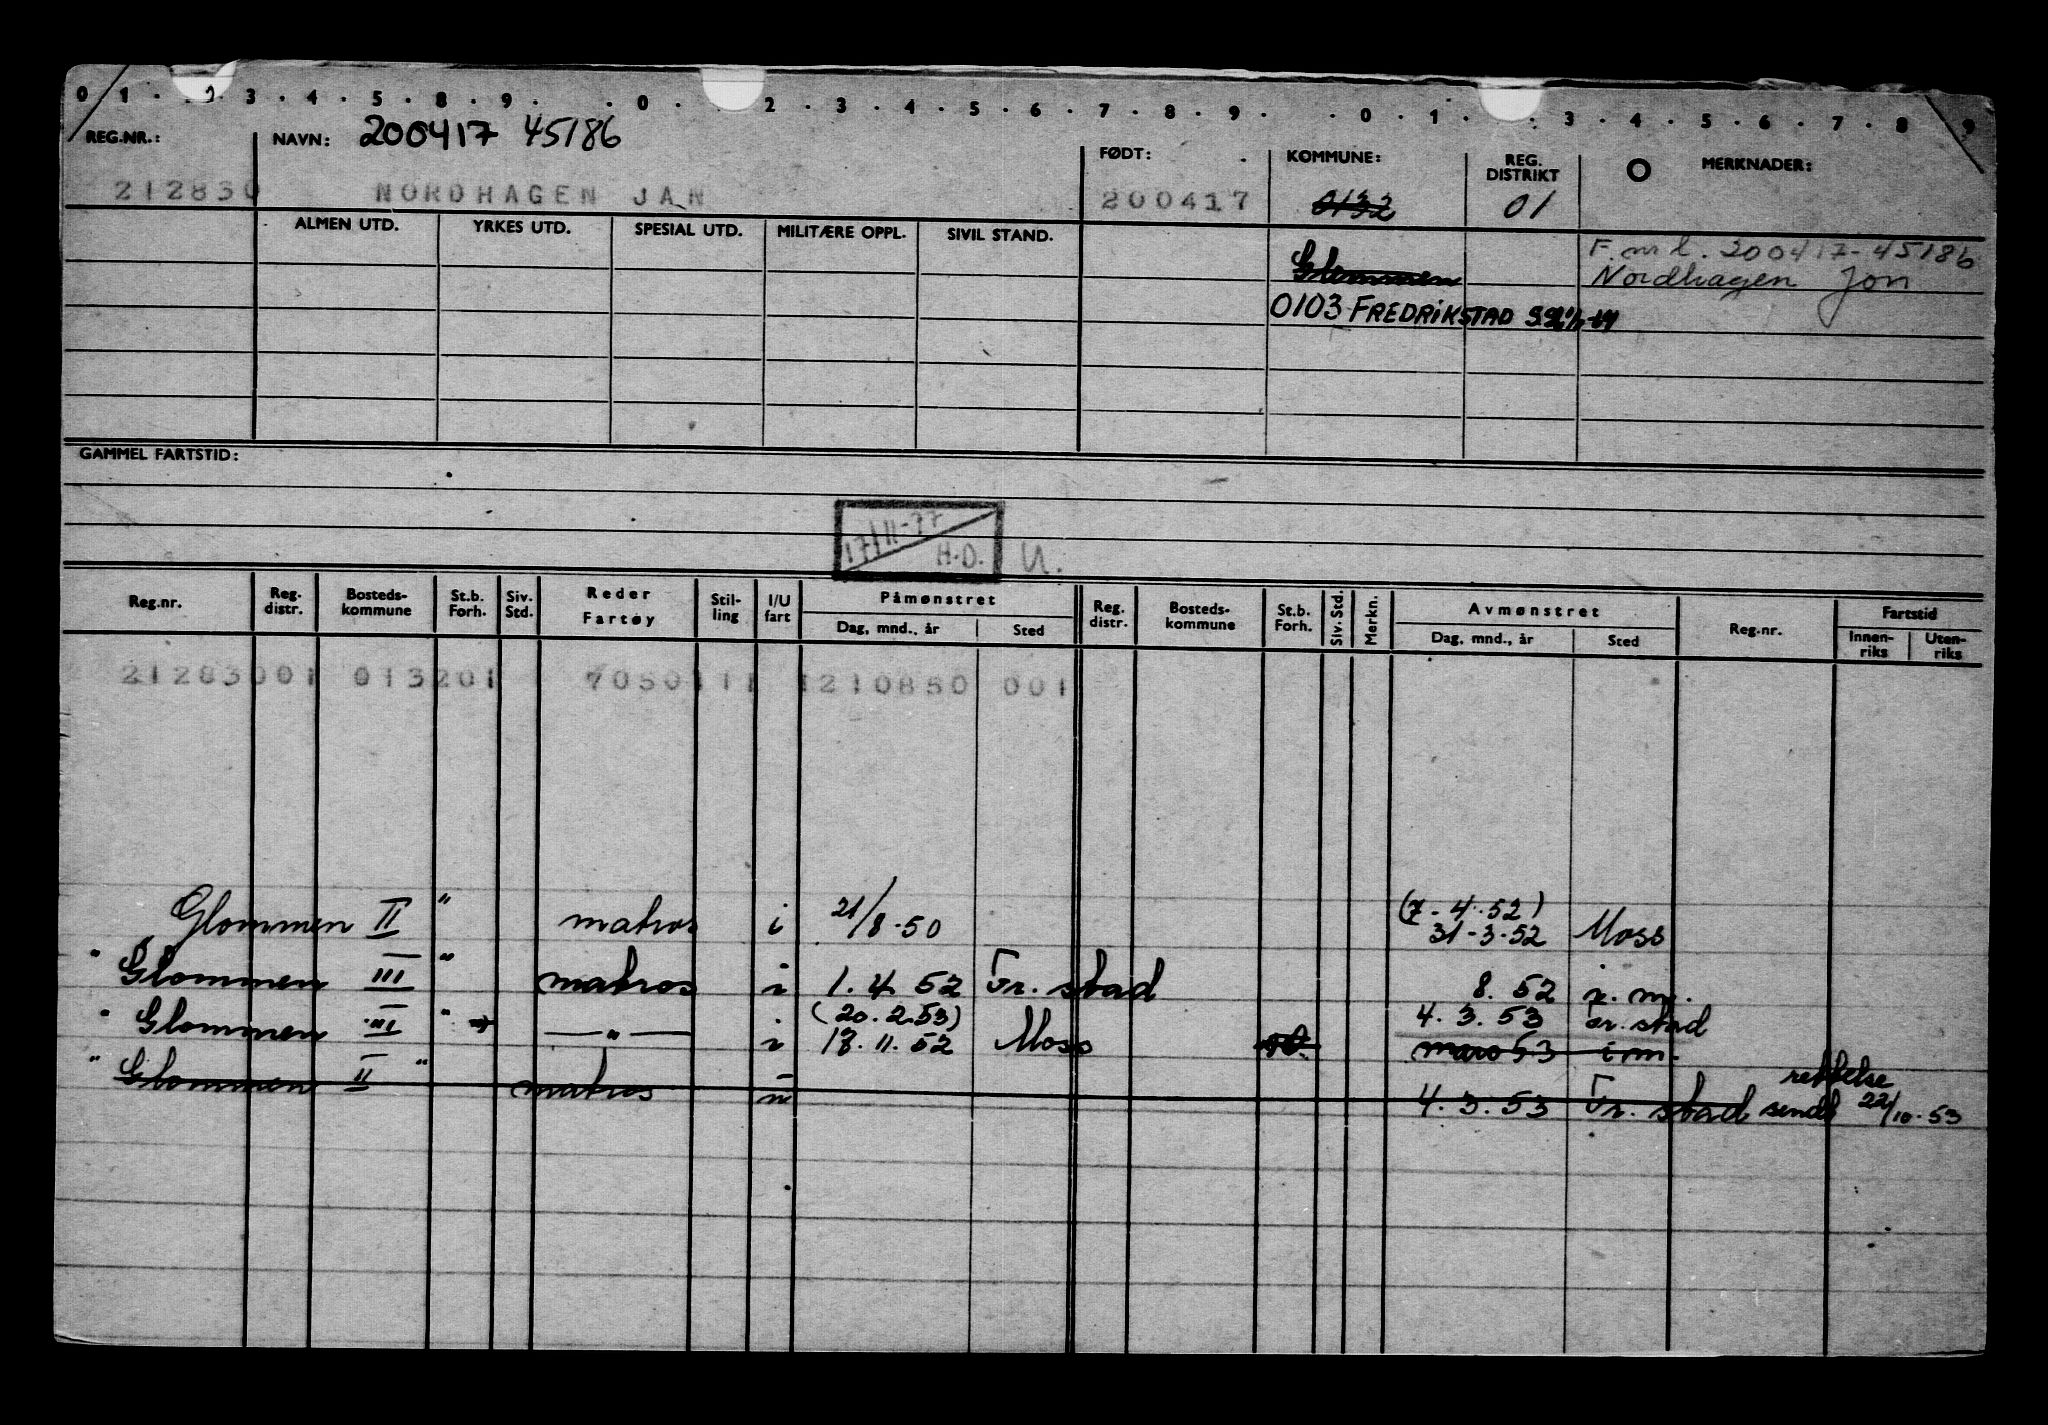 0 1 . . 2 . 3 . 4 . 5 . 8 . 9 . . 0 . . 2 . 3 . 4 . 5 . 6 . 7 . 8 . 9 . . 0 . 1 . . 3 . 4 . 5 . 6 . 7 . 8 9
REG.NR.: NAVN: 200417 45186 FØDT: KOMMUNE: REG. DISTRIKT O MERKNADER:
212830 NORDHAGEN JAN 200417 0132 01
ALMEN UTD. YRKES UTD. SPESIAL UTD. MILITÆRE OPPL. SIVIL STAND.
F.nr l. 200417-45186
Glemmen Nordhagen Jon
0103 FREDRIKSTAD
GAMMEL FARTSTID:
17/11-77
H.D. U.
Reg.nr. Reg. distr. Bosteds- kommune St.b. Forh. Siv. Std. Reder Fartøy Stil- ling I/U fart Påmønstret Dag, mnd., år Sted Reg. distr. Bosteds- kommune St.b. Forh. Siv. Std. Merkn. Avmønstret Dag, mnd., år Sted Reg.nr. Fartstid Innen- riks Uten- riks
21283001 013201 7050111 1210850 001
Glommen II " matros i 21/8-50 (7-4.52) 31-3-52 Moss
" Glommen III " matros i 1.4.52 Fr.stad 8.52
" Glommen III " — " — i (20.2.53) 17.11.52 Moss 4.3.53 Fr.stad
mars 53 i m.
" Glommen II " matros i 4.3.53 Fr.stad rettelse sendt 22/10-53